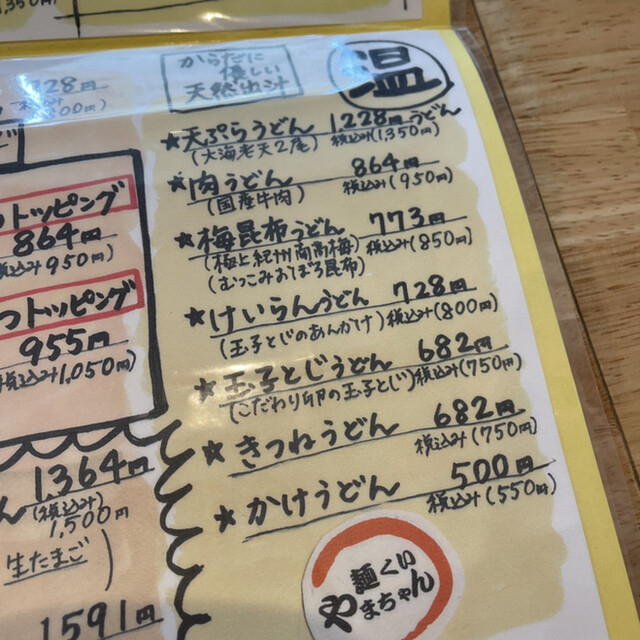 からだに
優しい
天然出汁
温
うどん
★天ぷらうどん 1228円
(大海老天2尾) 税込み(1,350円)
★肉うどん 864円
(国産牛肉) 税込み(950円)
★梅昆布うどん 773円
(極上紀州南高梅) 税込み(850円)
(むっこみおぼろ昆布)
★けいらんうどん 728円
(玉子とじのあんかけ) 税込み(800円)
★玉子とじうどん 682円
(こだわり卵の玉子とじ) 税込み(750円)
★きつねうどん 682円
税込み(750円)
★かけうどん 500円
税込み(550円)
麺くい
やまちゃん
トッピング
864円
税込み950円)
つトッピング
955円
税込み1,050円)
1,364円
ん(税込み)
1,500円
生たまご
1591円